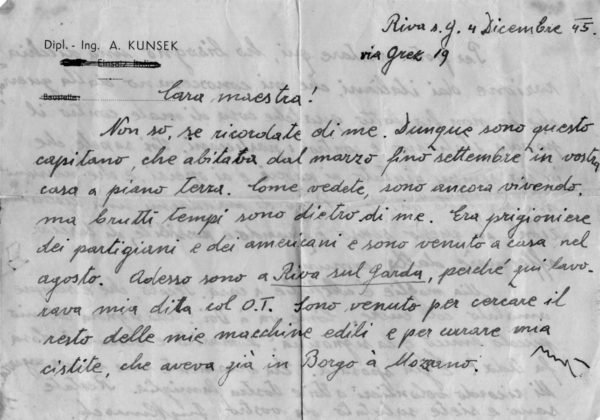 Riva s. g. 4 Dicembre 45.
via Grez 19
Dipl. - Ing. A. KUNSEK
Einsatz Italien
Baustelle
Cara maestra!
Non so, se ricordate di me. Dunque sono questo
capitano, che abitava dal marzo fino settembre in vostra
casa a piano terra. Come vedete, sono ancora vivendo,
ma brutti tempi sono dietro di me. Era prigioniere
dei partigiani e dei americani e sono venuto a casa nel
agosto. Adesso sono a Riva sul Garda, perché qui lavo-
rava mia dita col O.T. Sono venuto per cercare il
resto delle mie macchine edili e per currare mia
cistite, che aveva già in Borgo à Mozzano.